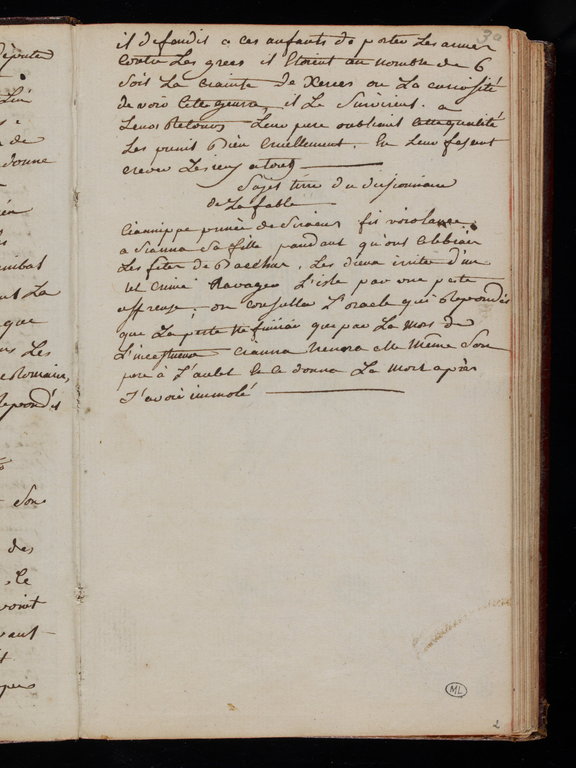 30
il defendit a ces enfants de porter Les armes
contre Les grecs il Etoient au nombre de 6
soit La crainte de Xerces ou La curiosité
de voir cette guerre, il Le suivirent. a
Leurs Retours Leur pere oubliant cette qualité
Les punit Bien cruellement. En Leur fesant
crever Les ieux a tous
Sujet tiré du dictionnaire
de La fable
Cianippe prince de Siracus fit violance
a Cianna Sa fille pandant qu'ons celebrai
Les fetes de Bacchus. Les dieux irrités d'un
tel crime Ravagea L'isle par une peste
affreuse, on consulta L'oracle qui Repondit
que La peste ne finirai que par La mor de
L'incestueux Cianna trena elle même Son
pere à L'autel Et ce donna La mort après
L'avoir immolé
pute
Lui
de
donne
nibal
nt La
que
Les
Romain,
Repondit
Son
des
Le
voint
vant
ML
2